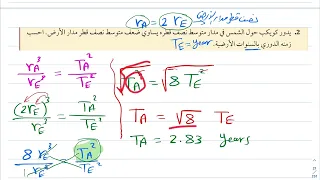 نصف قطر مدار الأرض
r_A = 2 r_E
2. يدور كويكب حول الشمس في مدار متوسط نصف قطره يساوي ضعف متوسط نصف قطر مدار الأرض. احسب
زمنه الدوري بالسنوات الأرضية.
T_E = year
r_A³ / r_E³ = T_A² / T_E²
(2r_E)³ / r_E³ = T_A² / T_E²
8 r_E³ / 1 r_E³ = T_A² / T_E²
√T_A² = √8 T_E²
T_A = √8 T_E
T_A = 2.83 years